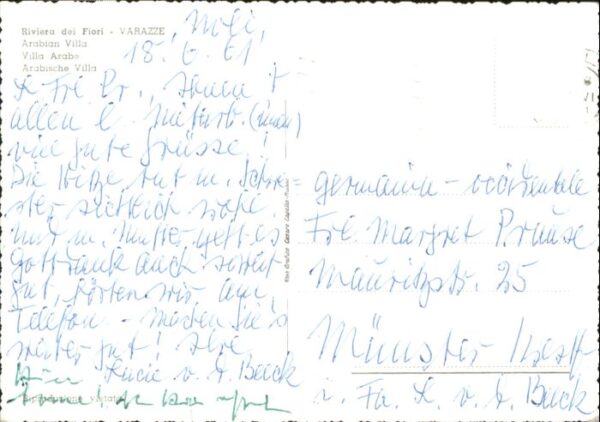 Riviera dei Fiori - VARAZZE
Arabian Villa
Villa Arabe
Arabische Villa
Noli,
18. 6. 61
L. Frl. Pr., Ihnen +
allen l. Mitarb. (innen)
viele gute Grüsse!
Die Hitze tut m. Schwe=
ster sichtlich wohl.
Und m. Mutter geht es
Gottlank auch soweit
gut, hörten wir am
Telefon. - Machen Sie's
weiter gut! Ihre
Lucie v. d. Beeck
Riproduzione vietata
Germania - occidentale
Frl. Margret Prause
Mauritzstr. 25
Münster Westf
i. Fa. L. v. d. Beeck